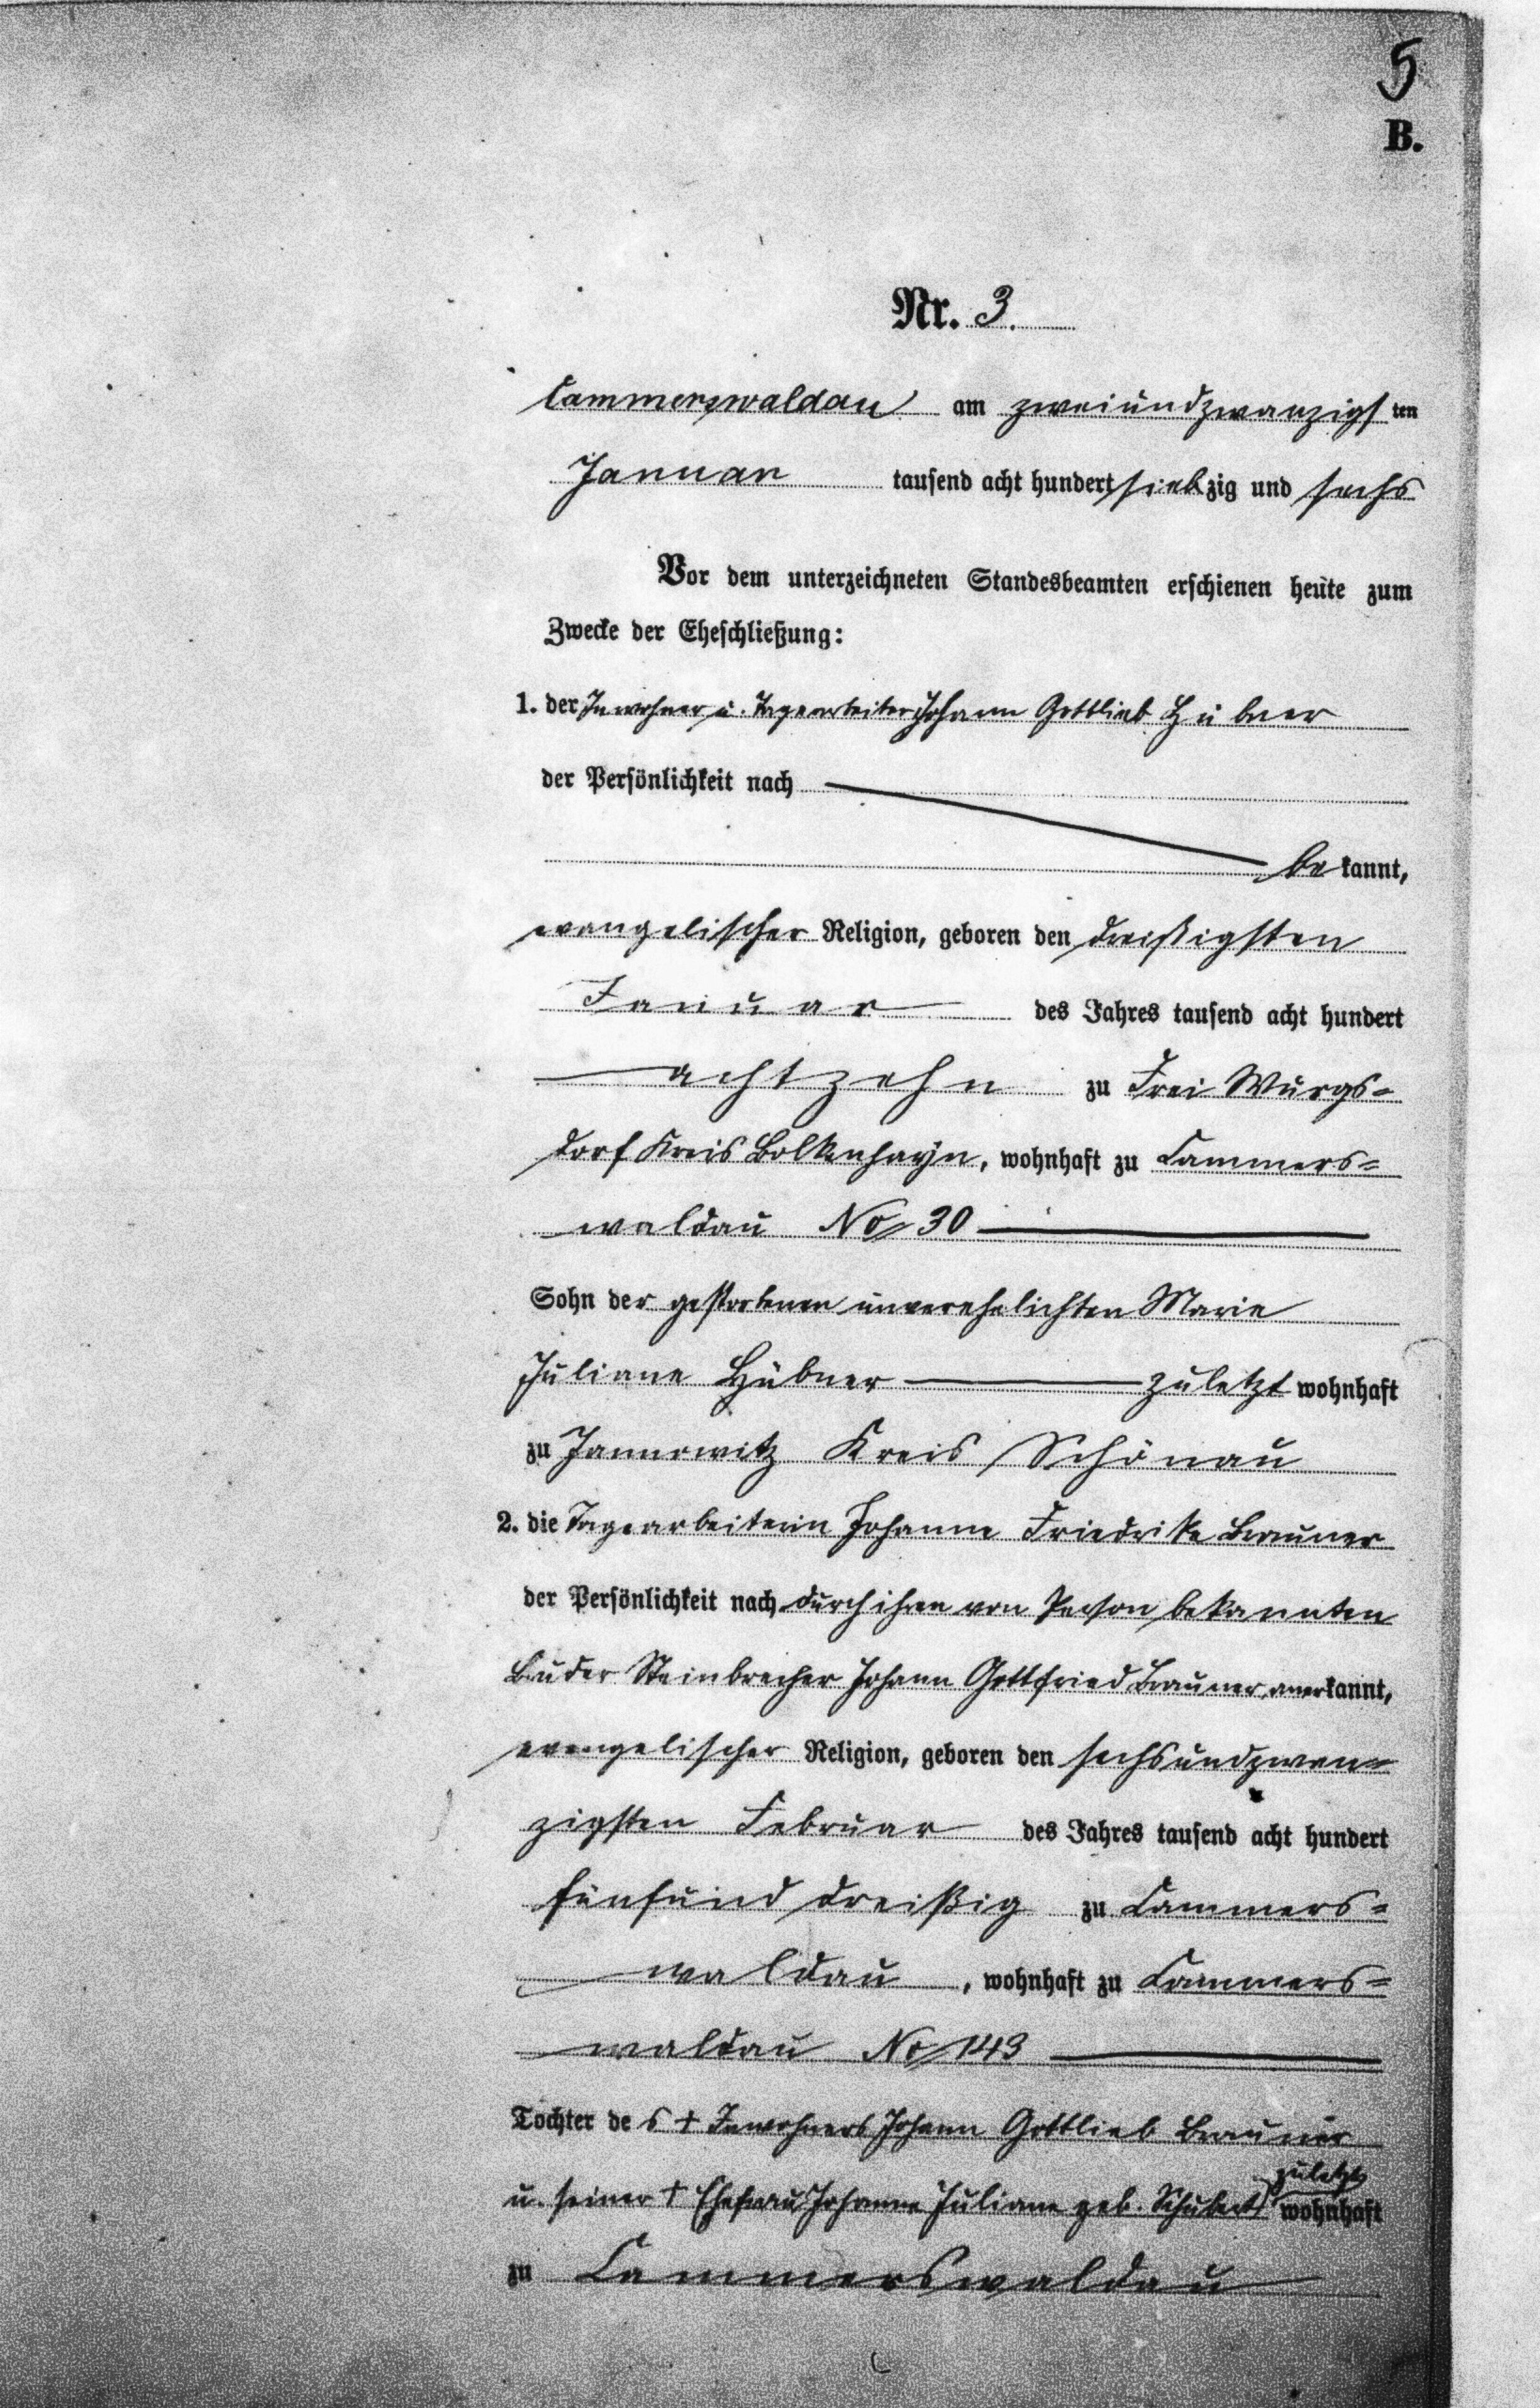 5
B.
Nr. 3.
Cammerswaldau am zweiundzwanzigsten
Januar tausend acht hundert siebzig und sechs
Vor dem unterzeichneten Standesbeamten erschienen heute zum
Zwecke der Eheschließung:
1. der Inwohner u. Tagearbeiter Johann Gottlieb Hübner
der Persönlichkeit nach
bekannt,
evangelischer Religion, geboren den dreißigsten
Januar des Jahres tausend acht hundert
achtzehn zu Frei Würgs=
dorf Kreis Bolkenhayn, wohnhaft zu Cammers=
waldau No 30
Sohn der gestorbenen unverehelichten Marie
Juliane Hübner zuletzt wohnhaft
zu Jannowitz Kreis Schönau
2. die Tagearbeiterin Johanne Friedrike Brauner
der Persönlichkeit nach durch ihren von Person bekannten
Bruder Steinbrecher Johann Gottfried Brauner anerkannt,
evangelischer Religion, geboren den sechsundzwan=
zigsten Februar des Jahres tausend acht hundert
fünfund dreißig zu Cammers=
waldau, wohnhaft zu Cammers=
waldau No 143
Tochter des † Inwohners Johann Gottlieb Brauner
u. seiner † Ehefrau Johanne Juliane geb. Schubert zuletzt wohnhaft
zu Cammerswaldau